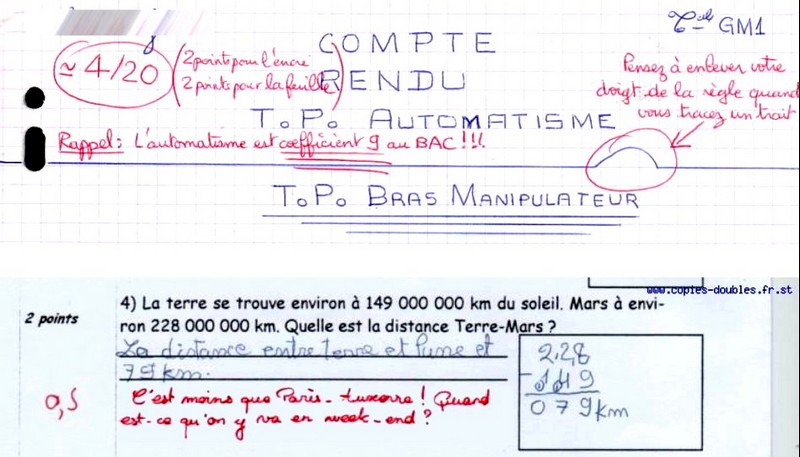 Tale GM1
≃ 4/20
(2 points pour l'encre
2 points pour la feuille)
COMPTE
RENDU
T.P. AUTOMATISME
Pensez à enlever votre
doigt de la règle quand
vous tracez un trait
Rappel : L'automatisme est coefficient 9 au BAC !!!
T.P. BRAS MANIPULATEUR
www.copies-doubles.fr.st
2 points
4) La terre se trouve environ à 149 000 000 km du soleil. Mars à envi-
ron 228 000 000 km. Quelle est la distance Terre-Mars ?
La distance entre terre et lune et
79 km.
0,5
C'est moins que Paris-Auxerre ! Quand
est-ce qu'on y va en week-end ?
228
- 149
079 km